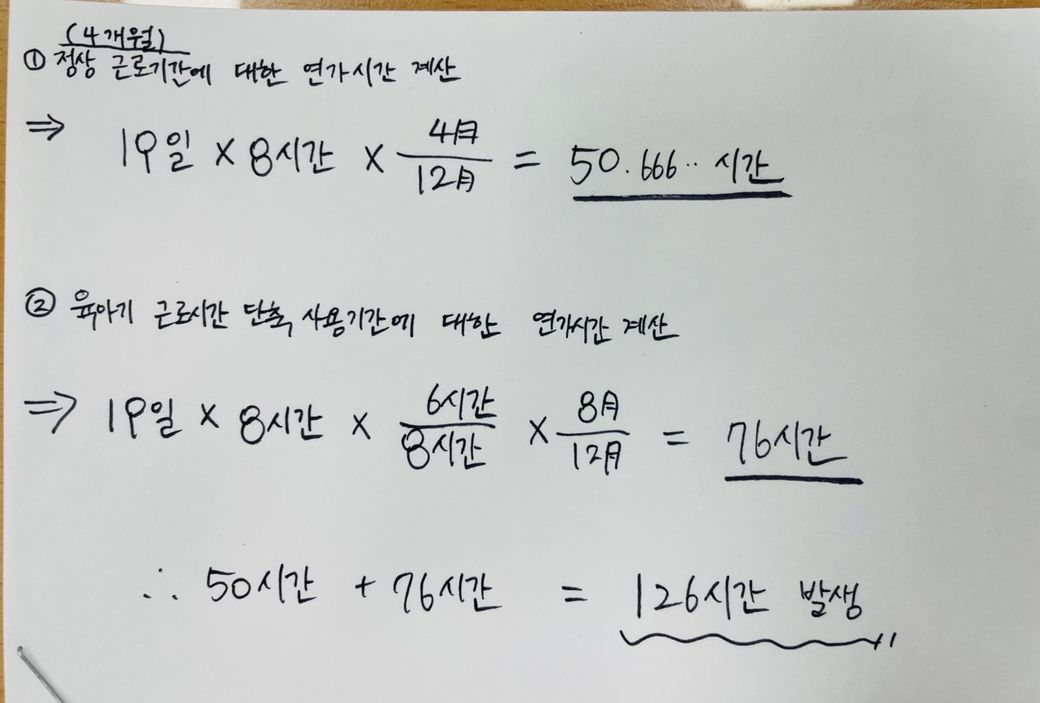 (4개월)
① 정상 근로기간에 대한 연가시간 계산
⇒ 19일 × 8시간 × 4月/12月 = 50.666‥ 시간
② 육아기 근로시간 단축 사용기간에 대한 연가시간 계산
⇒ 19일 × 8시간 × 6시간/8시간 × 8月/12月 = 76시간
∴ 50시간 + 76시간 = 126시간 발생〃